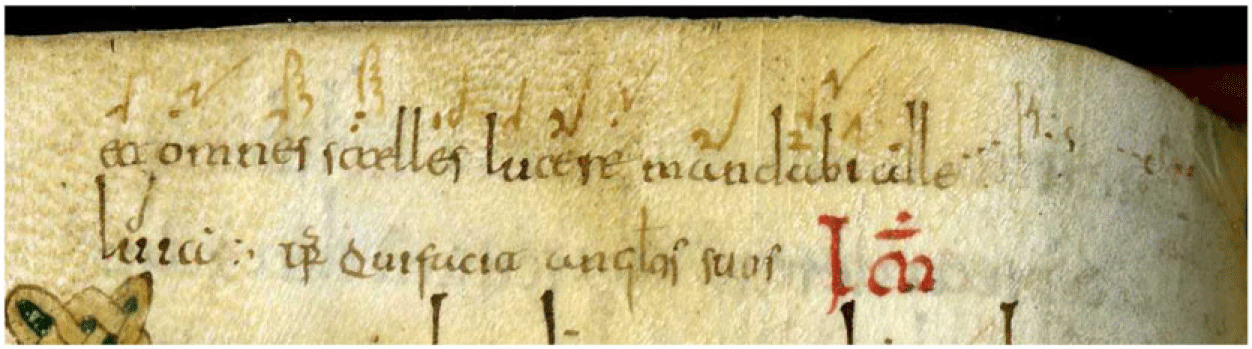 et omnes stelles lucere mandabi alle
luia : Qui facit anglos suos